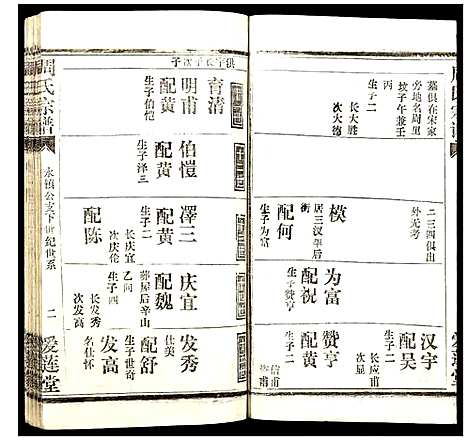 周氏宗譜
墓俱在宋家
旁地名周里
坟子午兼壬
生子二
长大胜
次大德
二三四俱出
外无考
模
居三汉平后
衝
配何
生子为富
为富
配祝
生子赞亨
汉宇
配吴
生子二
长应甫
次显
赞亨
配黄
生子二
爱莲堂
育清
明甫
配黄
生子伯恺
伯愷
配黄
生子泽三
澤三
配黄
生子二
长庆宜
次庆伦
配陈
庆宜
配魏
葬屋后辛山
乙向
生子四
长发秀
次发高
发秀
仕美
配舒
生子世奇
发高
名仕怀
周氏宗譜
永禎公支下世纪世系
二
爱莲堂